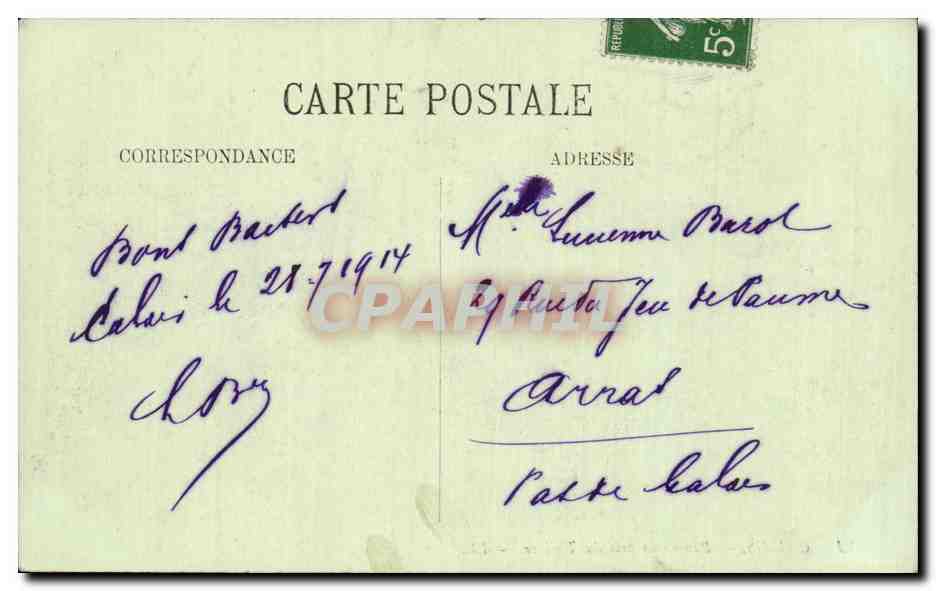 REPUB
5c
CARTE POSTALE
CORRESPONDANCE
ADRESSE
Bons Baisers
Calais le 21-7 1914
Melle Lucienne Barol
29 Rue du Jeu de Paume
Arras
Pas de Calais
CPAPHIL